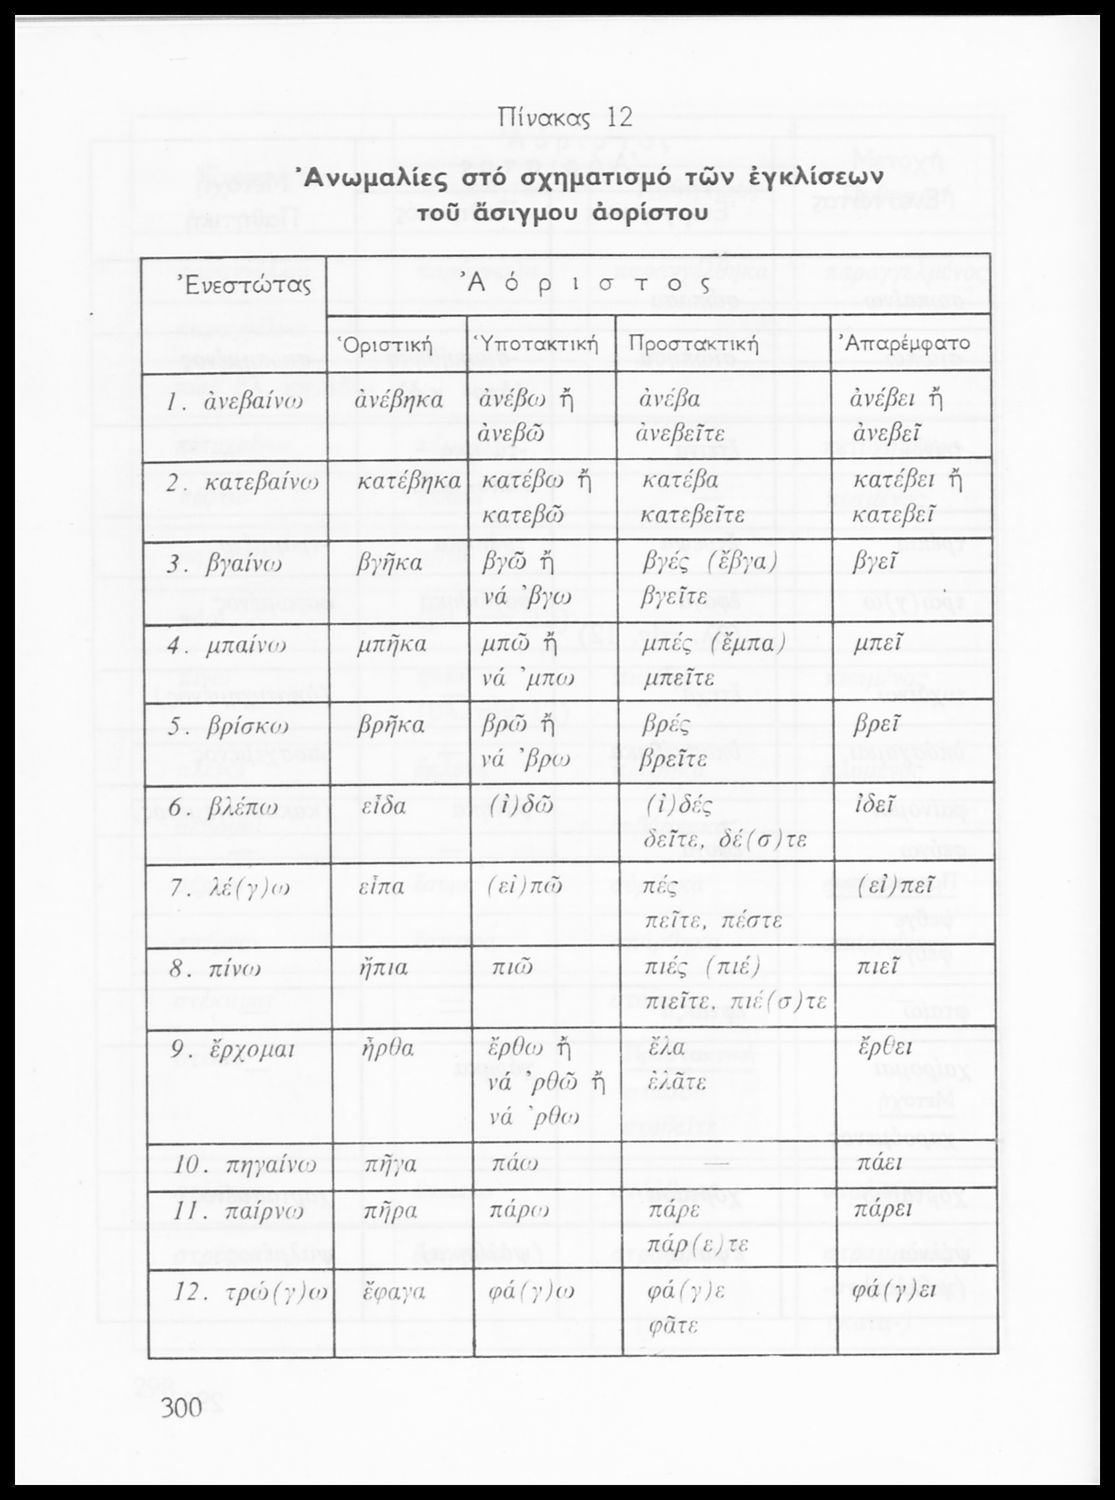 Πίνακας 12
Ἀνωμαλίες στό σχηματισμό τῶν ἐγκλίσεων
τοῦ ἄσιγμου ἀορίστου
Ἐνεστώτας Ἀόριστος
Ὁριστική Ὑποτακτική Προστακτική Ἀπαρέμφατο
1. ἀνεβαίνω ἀνέβηκα ἀνέβω ἤ ἀνέβα ἀνέβει ἤ
ἀνεβῶ ἀνεβεῖτε ἀνεβεῖ
2. κατεβαίνω κατέβηκα κατέβω ἤ κατέβα κατέβει ἤ
κατεβῶ κατεβεῖτε κατεβεῖ
3. βγαίνω βγῆκα βγῶ ἤ βγές (ἔβγα) βγεῖ
νά ᾿βγω βγεῖτε
4. μπαίνω μπῆκα μπῶ ἤ μπές (ἔμπα) μπεῖ
νά ᾿μπω μπεῖτε
5. βρίσκω βρῆκα βρῶ ἤ βρές βρεῖ
νά ᾿βρω βρεῖτε
6. βλέπω εἶδα (ἰ)δῶ (ἰ)δές ἰδεῖ
δεῖτε, δέ(σ)τε
7. λέ(γ)ω εἶπα (εἰ)πῶ πές (εἰ)πεῖ
πεῖτε, πέστε
8. πίνω ἤπια πιῶ πιές (πιέ) πιεῖ
πιεῖτε, πιέ(σ)τε
9. ἔρχομαι ἦρθα ἔρθω ἤ ἔλα ἔρθει
νά ᾿ρθῶ ἤ ἐλᾶτε
νά ᾿ρθω
10. πηγαίνω πῆγα πάω — πάει
11. παίρνω πῆρα πάρω πάρε πάρει
πάρ(ε)τε
12. τρώ(γ)ω ἔφαγα φά(γ)ω φά(γ)ε φά(γ)ει
φᾶτε
300